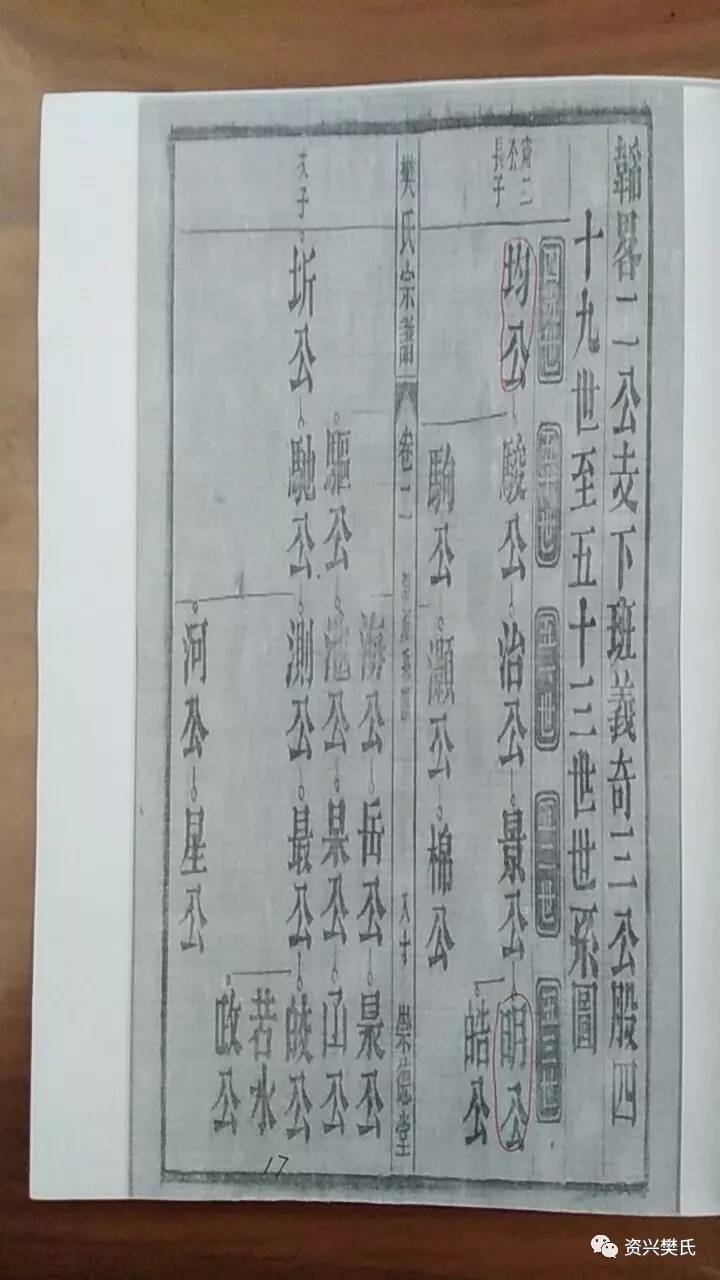 韜畧二公支下班義奇三公股四
十九世至五十三世世系圖
四十九世
五十世
五十一世
五十二世
五十三世
長子
均公
駿公
治公
景公
明公
皓公
駒公
灝公
棉公
樊氏宗譜
卷二
崇德堂
次子
海公
岳公
驅公
池公
果公
圻公
馳公
測公
最公
若水
河公
星公
17
资兴樊氏